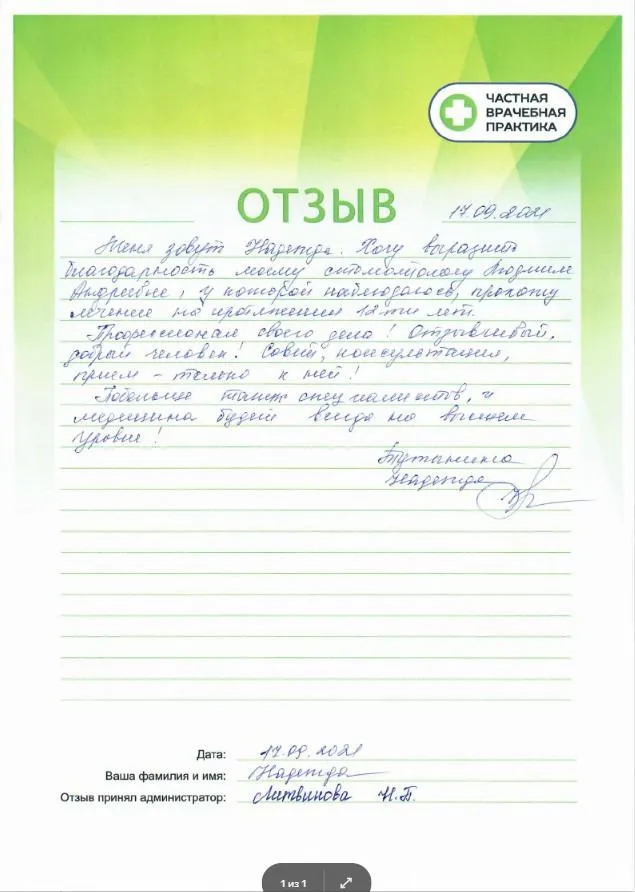 ЧАСТНАЯ
ВРАЧЕБНАЯ
ПРАКТИКА
ОТЗЫВ
17.09.2021
Меня зовут Надежда. Хочу выразить
благодарность моему стоматологу Людмиле
Андреевне, у которой наблюдалась, прохожу
лечение на протяжении 12ти лет.
Профессионал своего дела! Отзывчивый,
добрый человек! Совет, консультация,
прием - только к ней!
Побольше таких специалистов, и
медицина будет всегда на высшем
уровне!
Надежда
Дата: 17.09.2021
Ваша фамилия и имя: Надежда
Отзыв принял администратор: Литвинова Н.П.
1 из 1